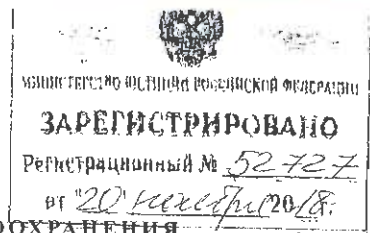 МИНИСТЕРСТВО ЮСТИЦИИ РОССИЙСКОЙ ФЕДЕРАЦИИ
ЗАРЕГИСТРИРОВАНО
Регистрационный № 52727
от "20" ноября 2018.
ООХРАНЕНИЯ